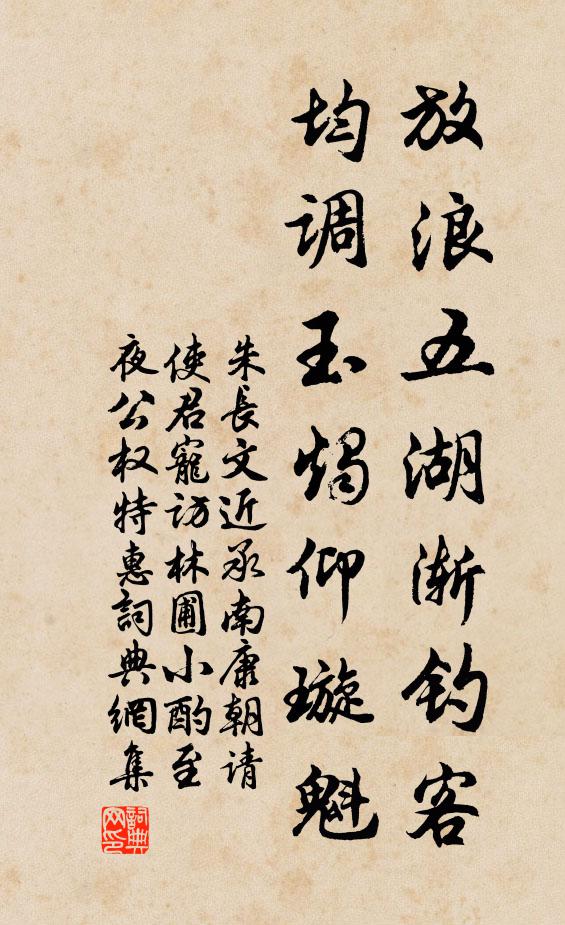 放浪五湖渐钓客
均调玉燭仰璇魁
朱長文近承南康朝请
使君寵访林圃小酌至
夜公权特惠詞典網集
詞典
网印